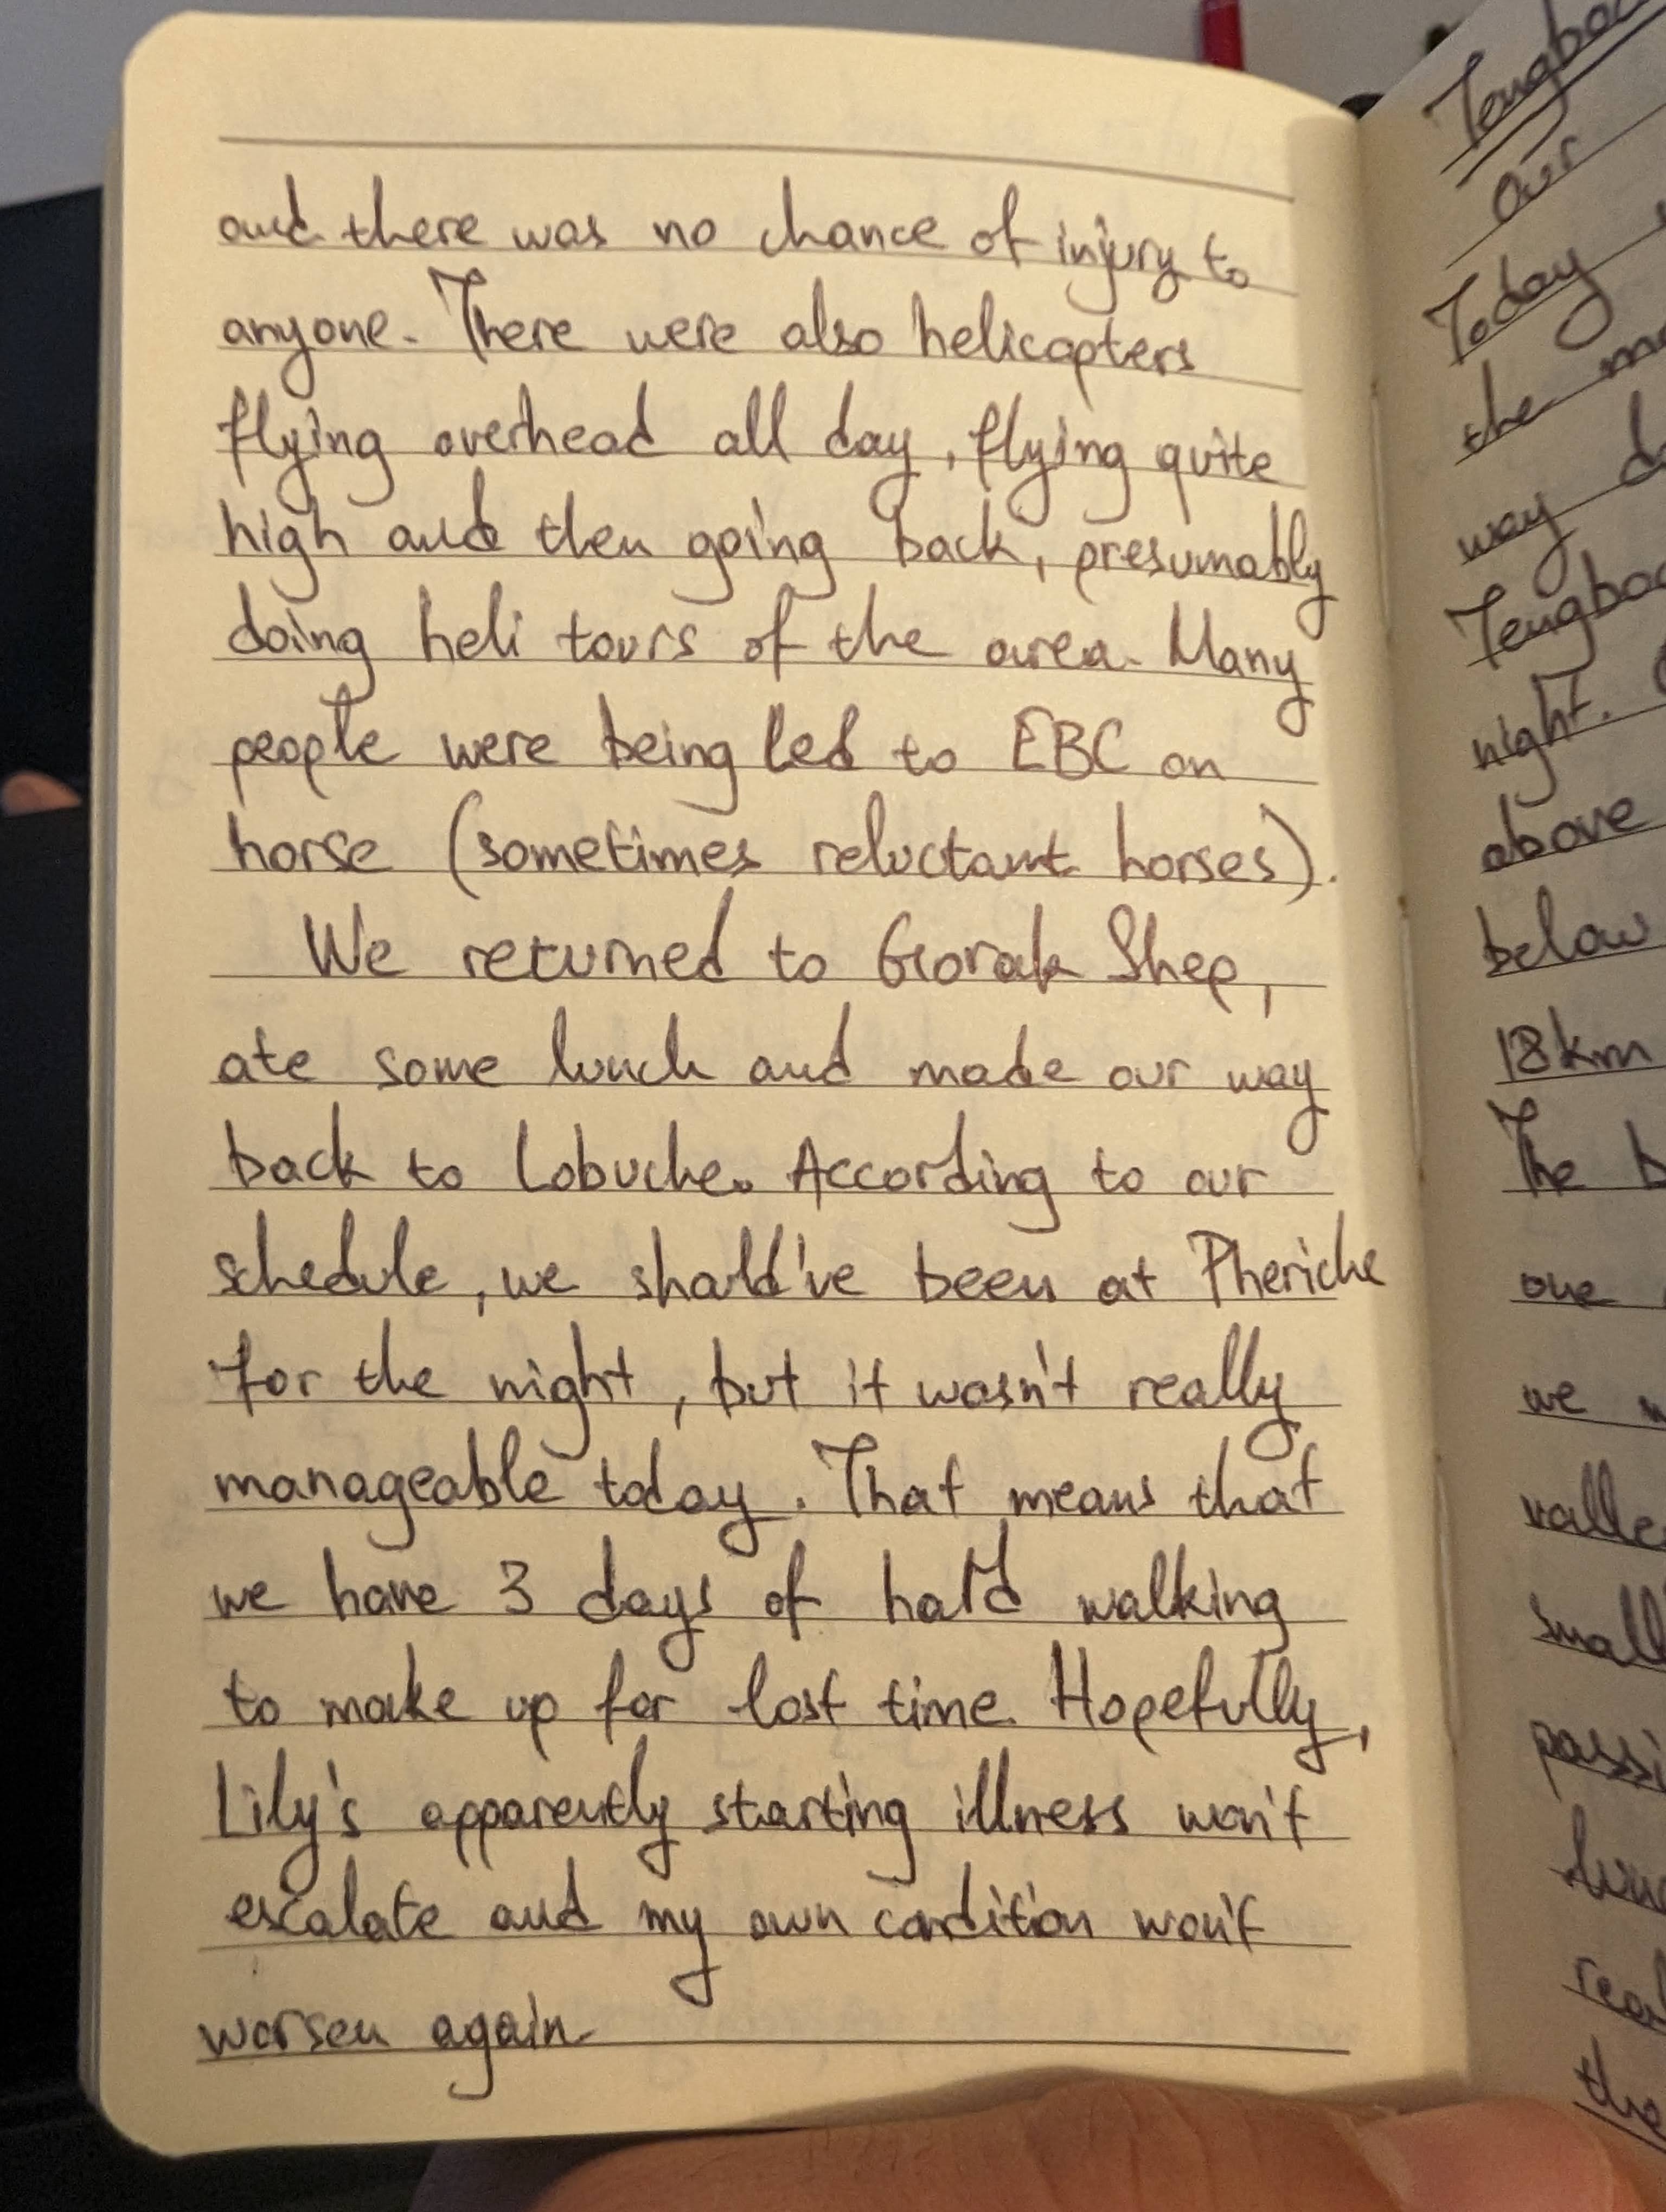 and there was no chance of injury to
anyone. There were also helicopters
flying overhead all day, flying quite
high and then going back, presumably
doing heli tours of the area. Many
people were being led to EBC on
horse (sometimes reluctant horses).
We returned to Gorak Shep,
ate some lunch and made our way
back to Lobuche. According to our
schedule, we should've been at Pheriche
for the night, but it wasn't really
manageable today. That means that
we have 3 days of hard walking
to make up for lost time. Hopefully,
Lily's apparently starting illness won't
escalate and my own condition won't
worsen again.
Our
Today
the
way
night.
above
below
18km
The
one
we
small
the